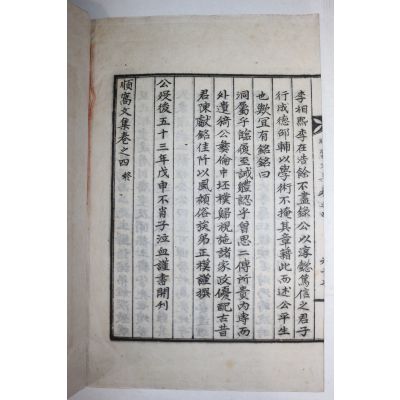 李相熙李在浩餘不盡錄公以淳慤篤信之君子
行成德卲輔以學術不掩其章籍此而述公平生
也歟宜有銘銘曰
洞屬乎隂復至誠體認乎曾思二傳所貴內專而
外遺猗公藝倫中坯樸歸視施諸家政優配古昔
君陳獻銘佳阡以風頹俗族弟正樸謹撰
公歿後五十三年戊申不肖子泣血謹書開刊
順窩文集卷之四 終